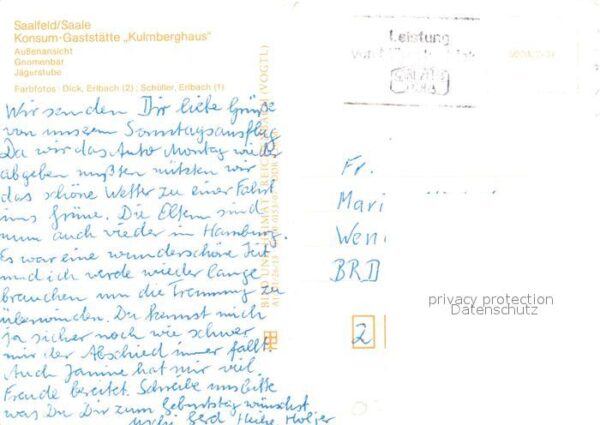 Saalfeld/Saale
Konsum-Gaststätte „Kulmberghaus"
Außenansicht
Gnomenbar
Jägerstube
Farbfotos: Dick, Erlbach (2); Schüller, Erlbach (1)
Wir senden Dir liebe Grüße
von unserem Sonntagsausflug
Da wir das Auto Montag wieder
abgeben mußten nützten wir
das schöne Wetter zu einer Fahrt
ins Grüne. Die Eltern sind
nun auch wieder in Hamburg.
Es war eine wunderschöne Zeit
und ich werde wieder lange
brauchen um die Trennung zu
überwinden. Du kennst mich
ja sicher noch wie schwer
mir der Abschied immer fällt.
Auch Janine hat mir viel
Freude bereitet. Schreibe uns bitte
was Du Dir zum Geburtstag wünschst
Uschi Gerd Heike Holger
BILD UND HEIMAT REICHENBACH (VOGTL)
Leistung
Fr.
Mari
Wen
BRD
2
privacy protection
Datenschutz